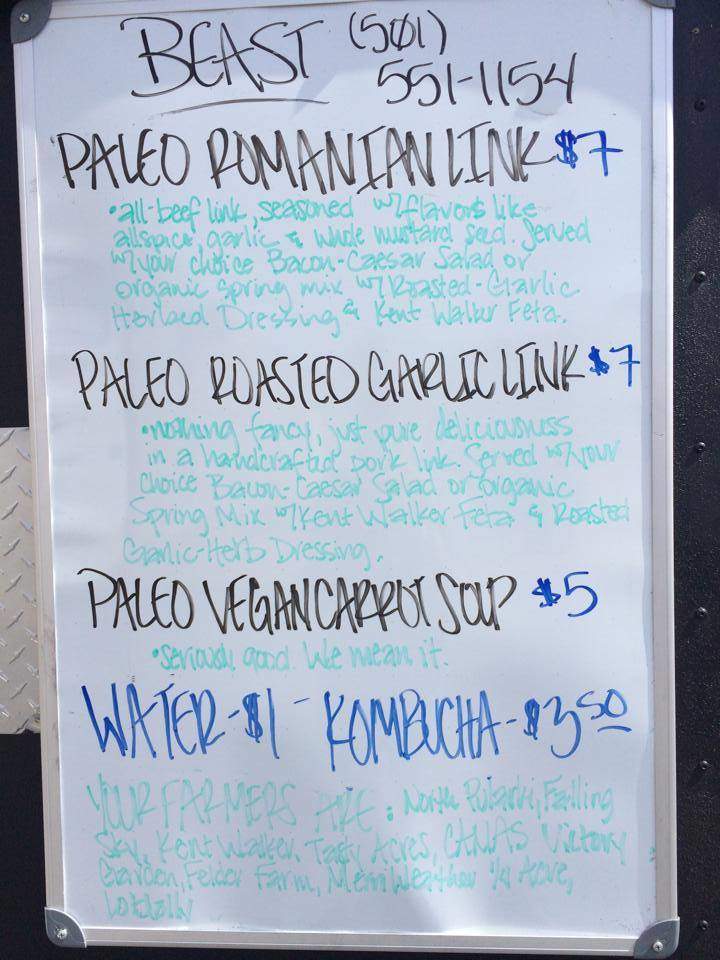 BEAST (501)
551-1154
PALEO ROMANIAN LINK $7
•all-beef link, seasoned w/flavors like
allspice, garlic & whole mustard seed. Served
w/your choice Bacon-Caesar Salad or
organic spring mix w/Roasted-Garlic
Dressing & Kent Walker Feta.
PALEO ROASTED GARLIC LINK $7
•nothing fancy, just pure deliciousness
in a handcrafted pork link. Served w/your
choice Bacon-Caesar Salad or organic
Spring Mix w/Kent Walker Feta & Roasted
Garlic-Herb Dressing.
PALEO VEGAN CARROT SOUP $5
•seriously good. We mean it.
WATER-$1 - KOMBUCHA-$3 50
YOUR FARMERS ARE: North Pulaski, Falling
Sky, Kent Walker, Tasty Acres, Victory
Garden, Felder Farm, MerriWeather 1/4 Acre,